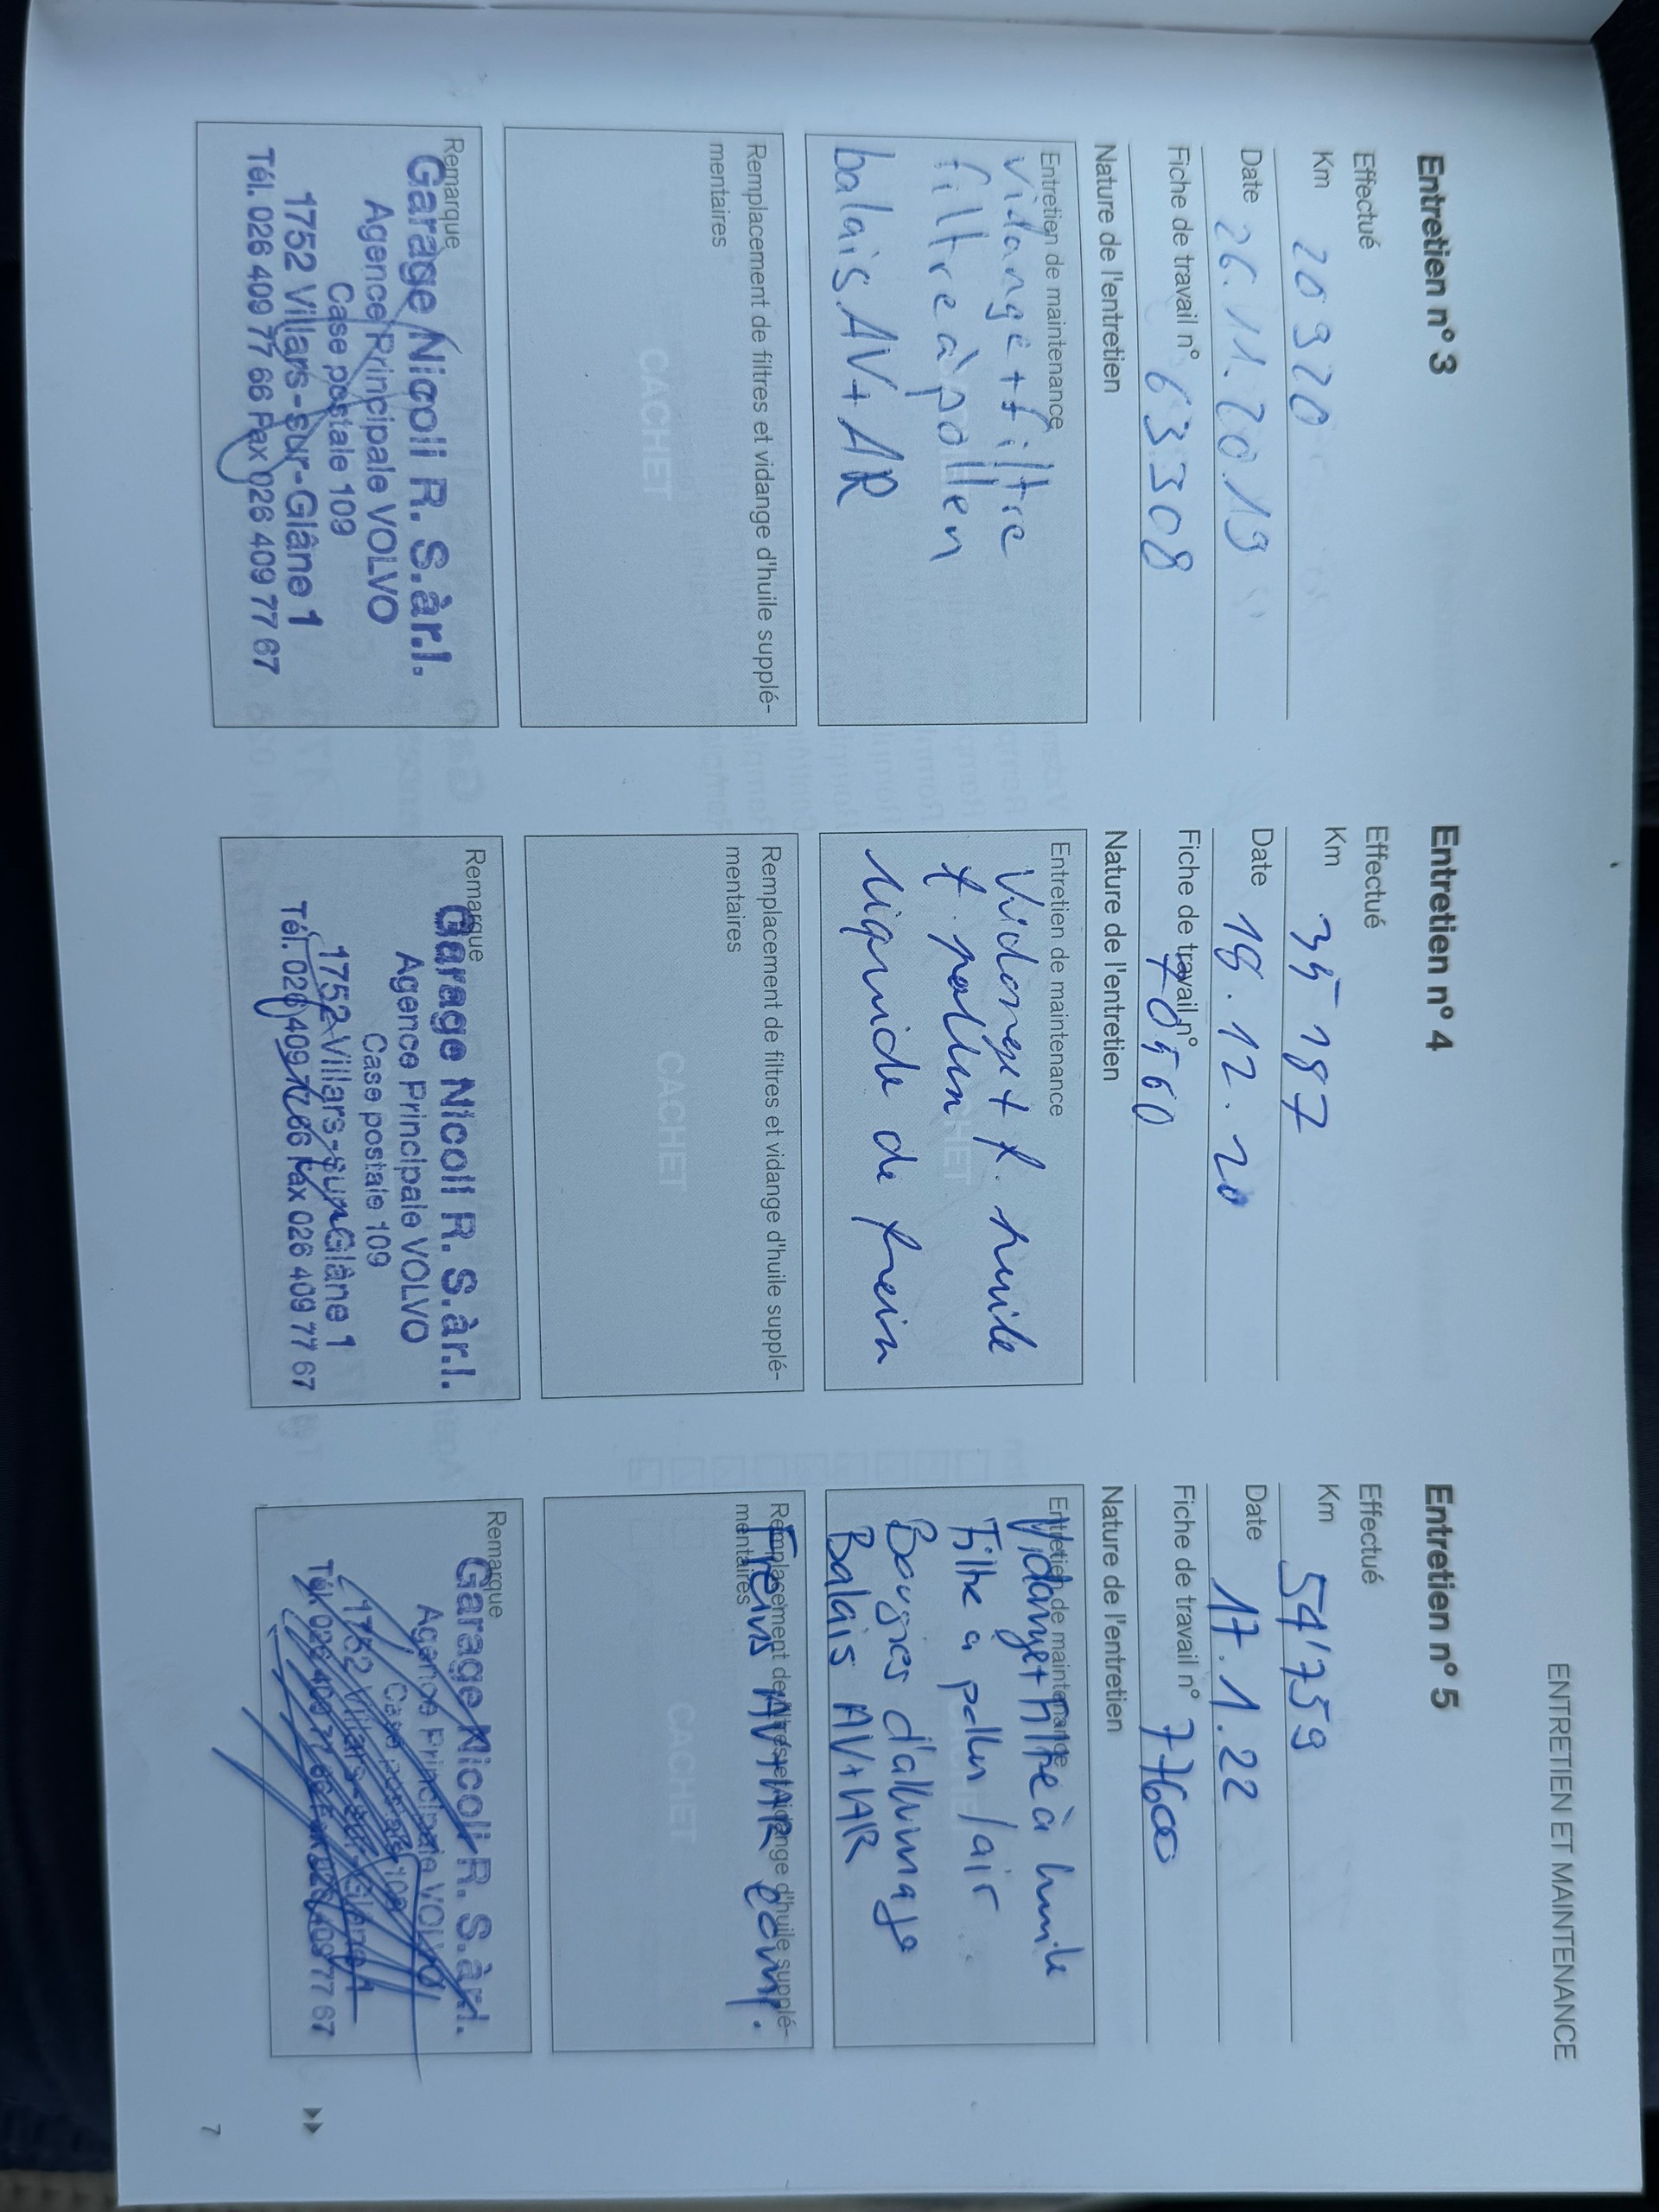 ENTRETIEN ET MAINTENANCE
Entretien n° 3
Effectué
Km 20920
Date 26.11.2019
Fiche de travail n° 63308
Nature de l'entretien
Entretien de maintenance
vidange + filtre
filtre à pollen
balais AV + AR
Remplacement de filtres et vidange d'huile supplé-
mentaires
CACHET
Remarque
Garage Nicoli R. S.à r.l.
Agence Principale VOLVO
Case postale 109
1752 Villars-sur-Glâne 1
Tél. 026 409 77 66 Fax 026 409 77 67
Entretien n° 4
Effectué
Km 35 187
Date 18.12.20
Fiche de travail n° 70560
Nature de l'entretien
Entretien de maintenance
Vidange + f. huile
f. pollen
liquide de frein
Remplacement de filtres et vidange d'huile supplé-
mentaires
CACHET
Remarque
Garage Nicoli R. S.à r.l.
Agence Principale VOLVO
Case postale 109
1752 Villars-sur-Glâne 1
Tél. 026 409 77 66 Fax 026 409 77 67
Entretien n° 5
Effectué
Km 54'759
Date 17.1.22
Fiche de travail n° 77600
Nature de l'entretien
Entretien de maintenance
Vidange + filtre à huile
Filtre à pollen / air
Bougies d'allumage
Balais AV + AR
Remplacement de filtres et vidange d'huile supplé-
mentaires
Freins AV + AR comp.
CACHET
Remarque
Garage Nicoli R. S.à r.l.
Agence Principale VOLVO
Case postale 109
1752 Villars-sur-Glâne 1
Tél. 026 409 77 66 Fax 026 409 77 67
7